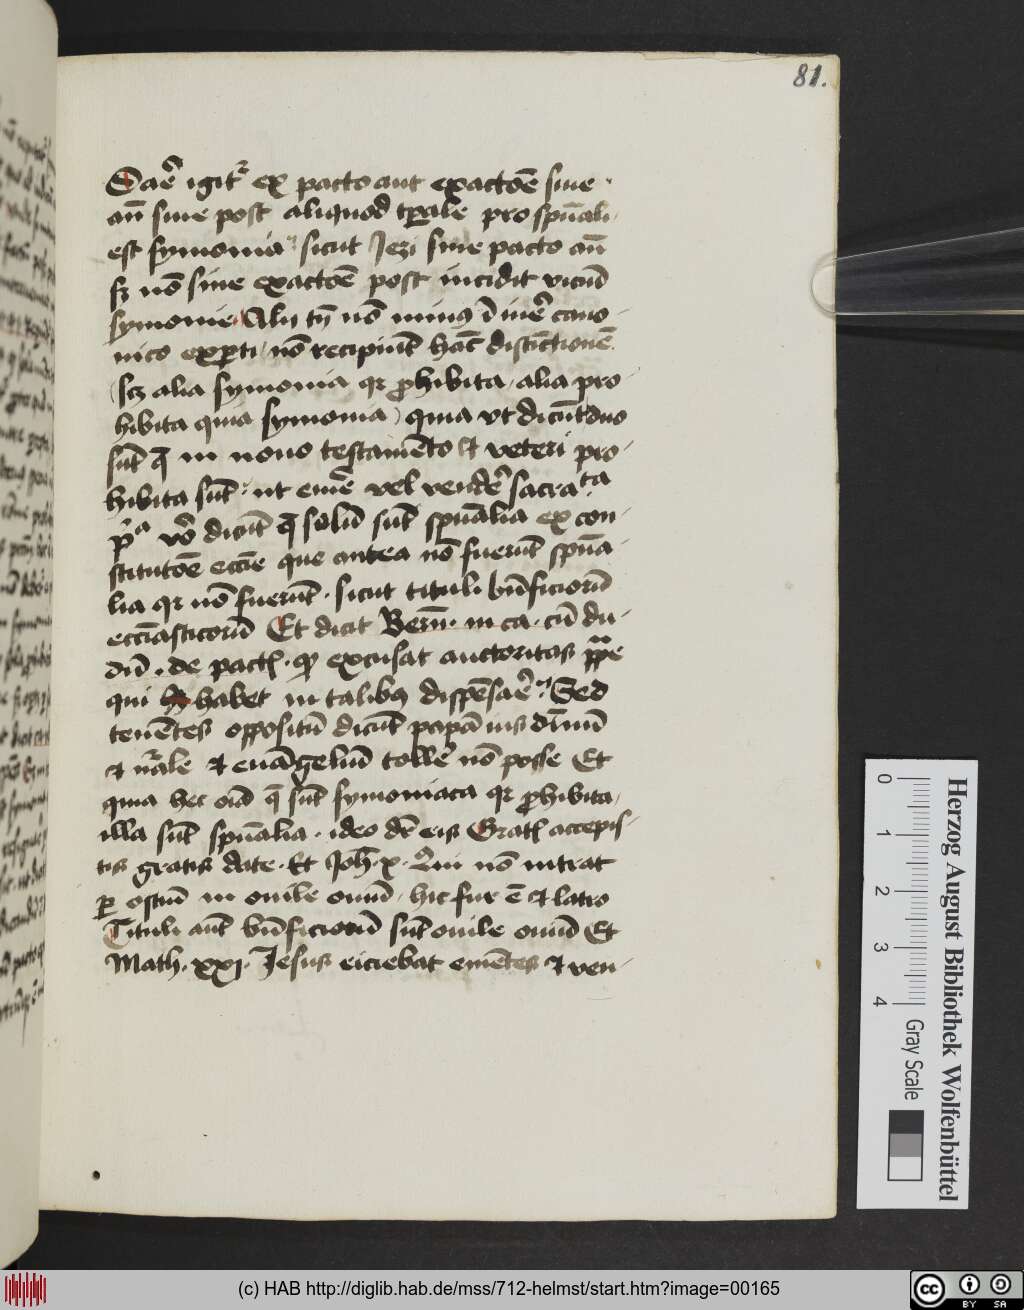 81.
Daẽ igitr ex pacto aut exactoẽ siue
añ siue post aliquod tꝑale pro spũali
est symonia sicut Jezi siue pacto añ
sꝫ nõ sine exactoẽ post incidit viciũ
symonie Alij tñ nõ minus ĩ iure cano-
nico exꝑti nõ recipiũt hãc distinctionẽ
(scꝫ alia symonia qr ꝓhibita alia pro-
hibita quia symonia) quia vt dicũt duo
sũt q̃ in nouo testamẽto et veteri pro-
hibita sũt ut emẽ vel vendẽ sacrata
pª vº dicũt q̃ solũ sũt spũalia ex con-
stitutõe eccie que antea nõ fuerũt spũa-
lia qr nõ fuerũt sicut tituli bñficiorũ
eccĩasticorũ Et dicit Berñ. in ca. cũ du-
dũ. de pact. qd excusat auctoritas ppe
qui habet in talibus dispẽsaẽ. Sed
tenẽtes oppositũ dicũt papã ius diuinũ
et nãle et euãgeliũ tollẽ nõ posse Et
quia hec oĩa q̃ sũt symoniaca qr ꝓhibita
illa sũt spũalia. ideo dr eis Gratis accepis-
tis gratis date. Et Joh. x. Qui nõ intrat
ꝑ ostiũ in ouile ouiũ hic fur ẽ et latro
Tituli aũt bñficiorũ sũt ouile ouiũ Et
Math. xxj. Jesus eiciebat emẽtes et ven-
Herzog August Bibliothek Wolfenbüttel
0 1 2 3 4 Gray Scale
(c) HAB http://diglib.hab.de/mss/712-helmst/start.htm?image=00165
cc BY SA